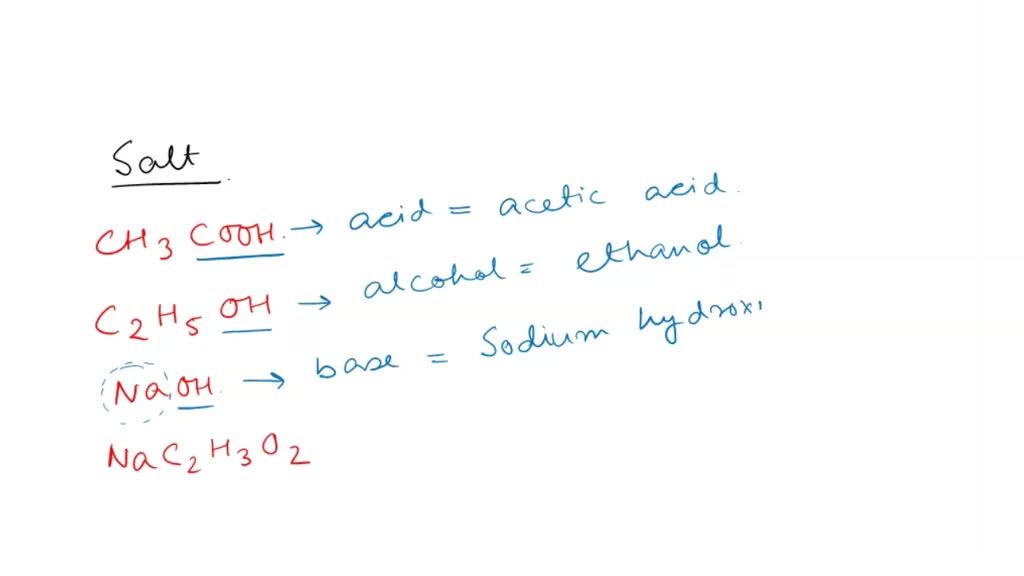 Salt.
CH3 COOH. → acid = acetic acid.
C2H5 OH → alcohol = ethanol.
NaOH. → base = Sodium hydroxi
NaC2H3O2